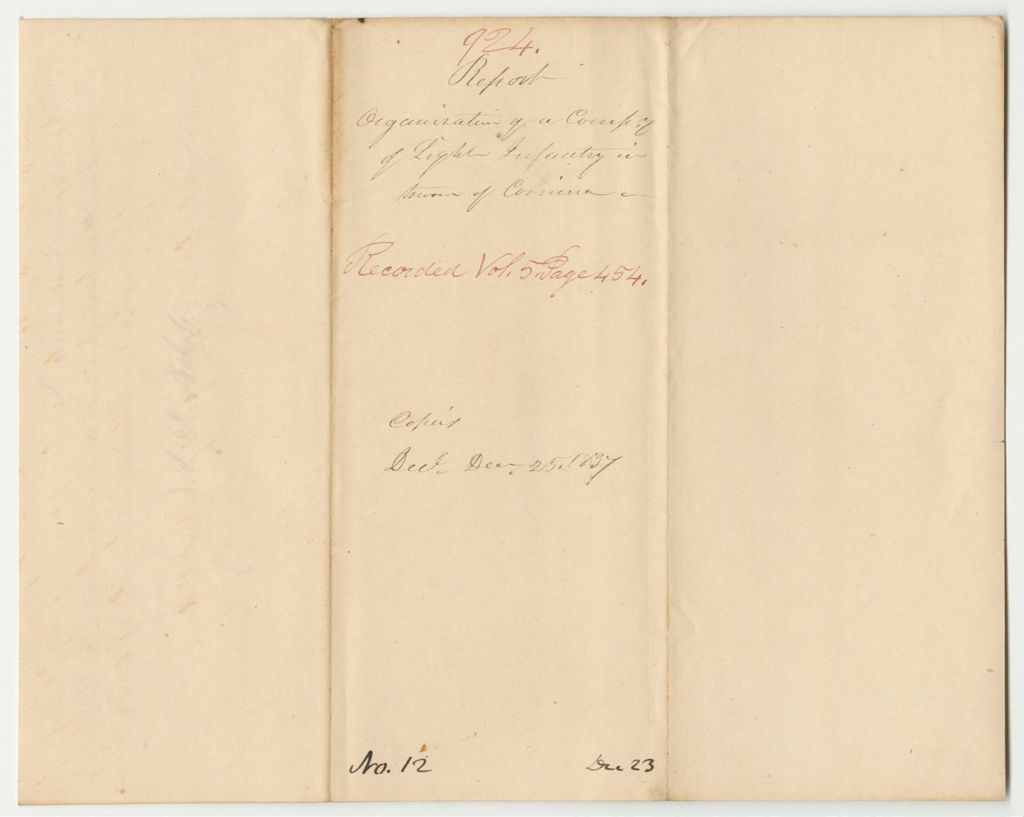 924.
Report
Organization of a Comp. of
of Light Infantry in
town of Corinna
Recorded Vol. 5. Page 454.
Copies
Dec. 25. 1837
No. 12
Dec 23